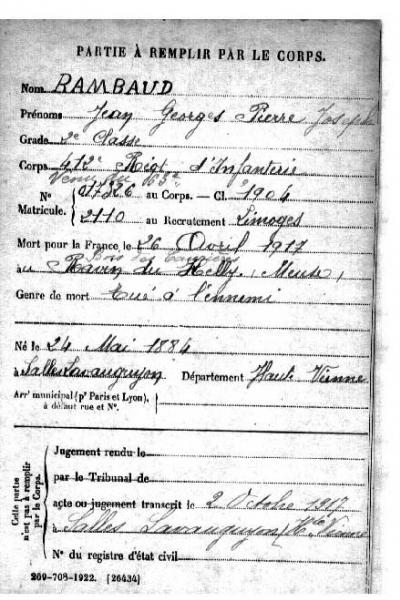 PARTIE À REMPLIR PAR LE CORPS.
Nom RAMBAUD
Prénoms Jean Georges Pierre Joseph
Grade 2e Classe
Corps 412e Régt d'Infanterie
Venu du 63e
N° Matricule. 017326 au Corps. — Cl. 1904
2110 au Recrutement Limoges
Mort pour la France le 26 Avril 1917
au Ravin du Helly (Meuse)
Genre de mort Tué à l'ennemi
Né le 24 Mai 1884
à Salles Lavauguyon Département Haute Vienne
Arrt municipal (pr Paris et Lyon),
à défaut rue et N°.
Cette partie n'est pas à remplir par le Corps.
Jugement rendu le
par le Tribunal de
acte ou jugement transcrit le 2 Octobre 1917
à Salles Lavauguyon (Hte Vienne
N° du registre d'état civil
269-708-1922. (26434)